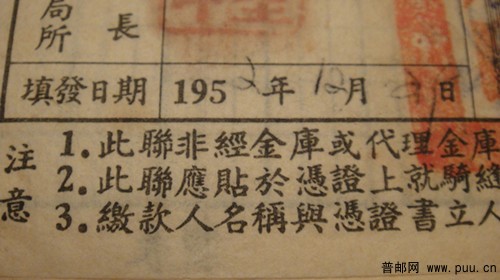 局所 長
填發日期 1952年12月2 日
注意
1.此聯非經金庫或代理金庫
2.此聯應貼於憑證上就騎縫
3.繳款人名稱與憑證書立人
普邮网 www.puu.cn